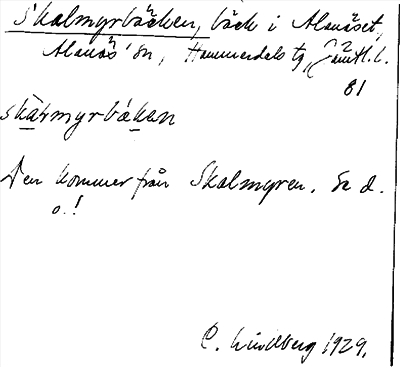 Skalmyrbäcken, bäck i Alanäset,
Alanäs sn, Hammerdals tg, Jämtl. l.
81
skàlmyrbákan
Den kommer från Skalmyren. Se d.
o.!
C. Lindberg 1929.